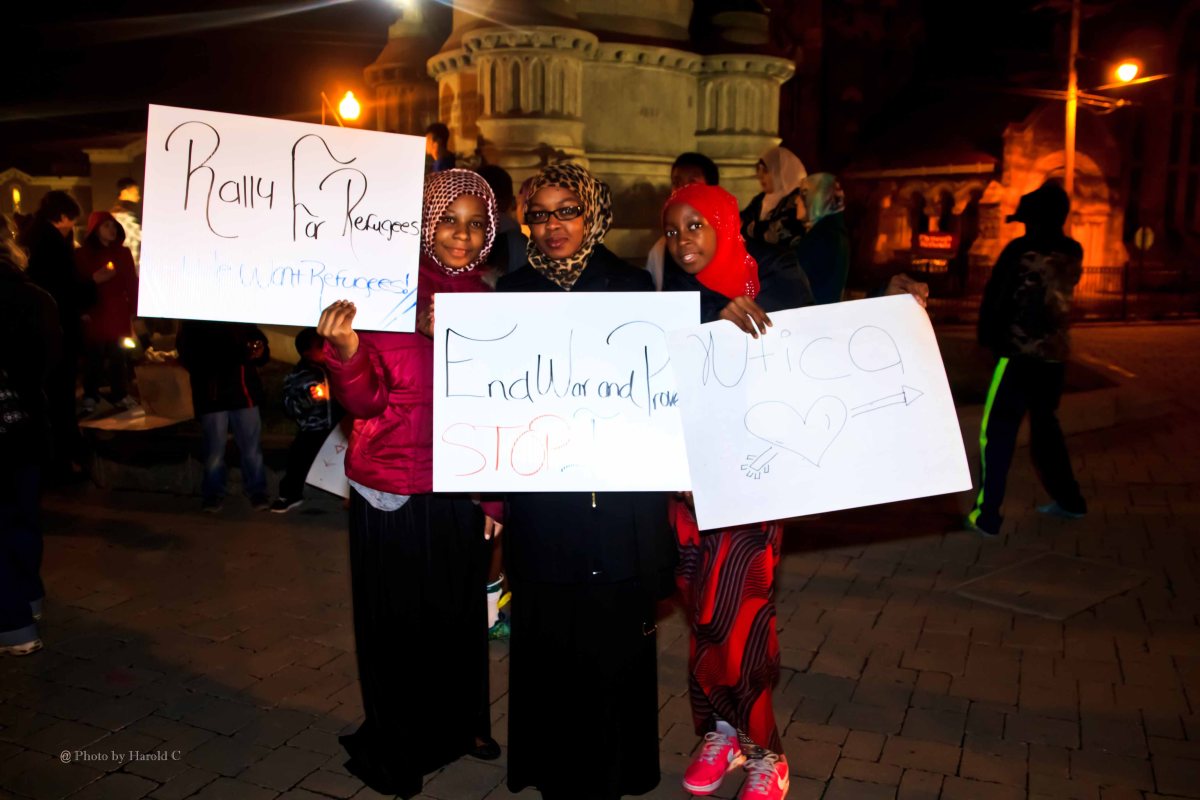 Rally For Refugees
We Want Refugees!
End War and
STOP
Utica
@ Photo by Harold C